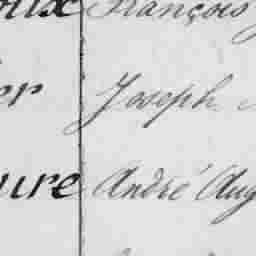 oux François
er Joseph
ure André Aug